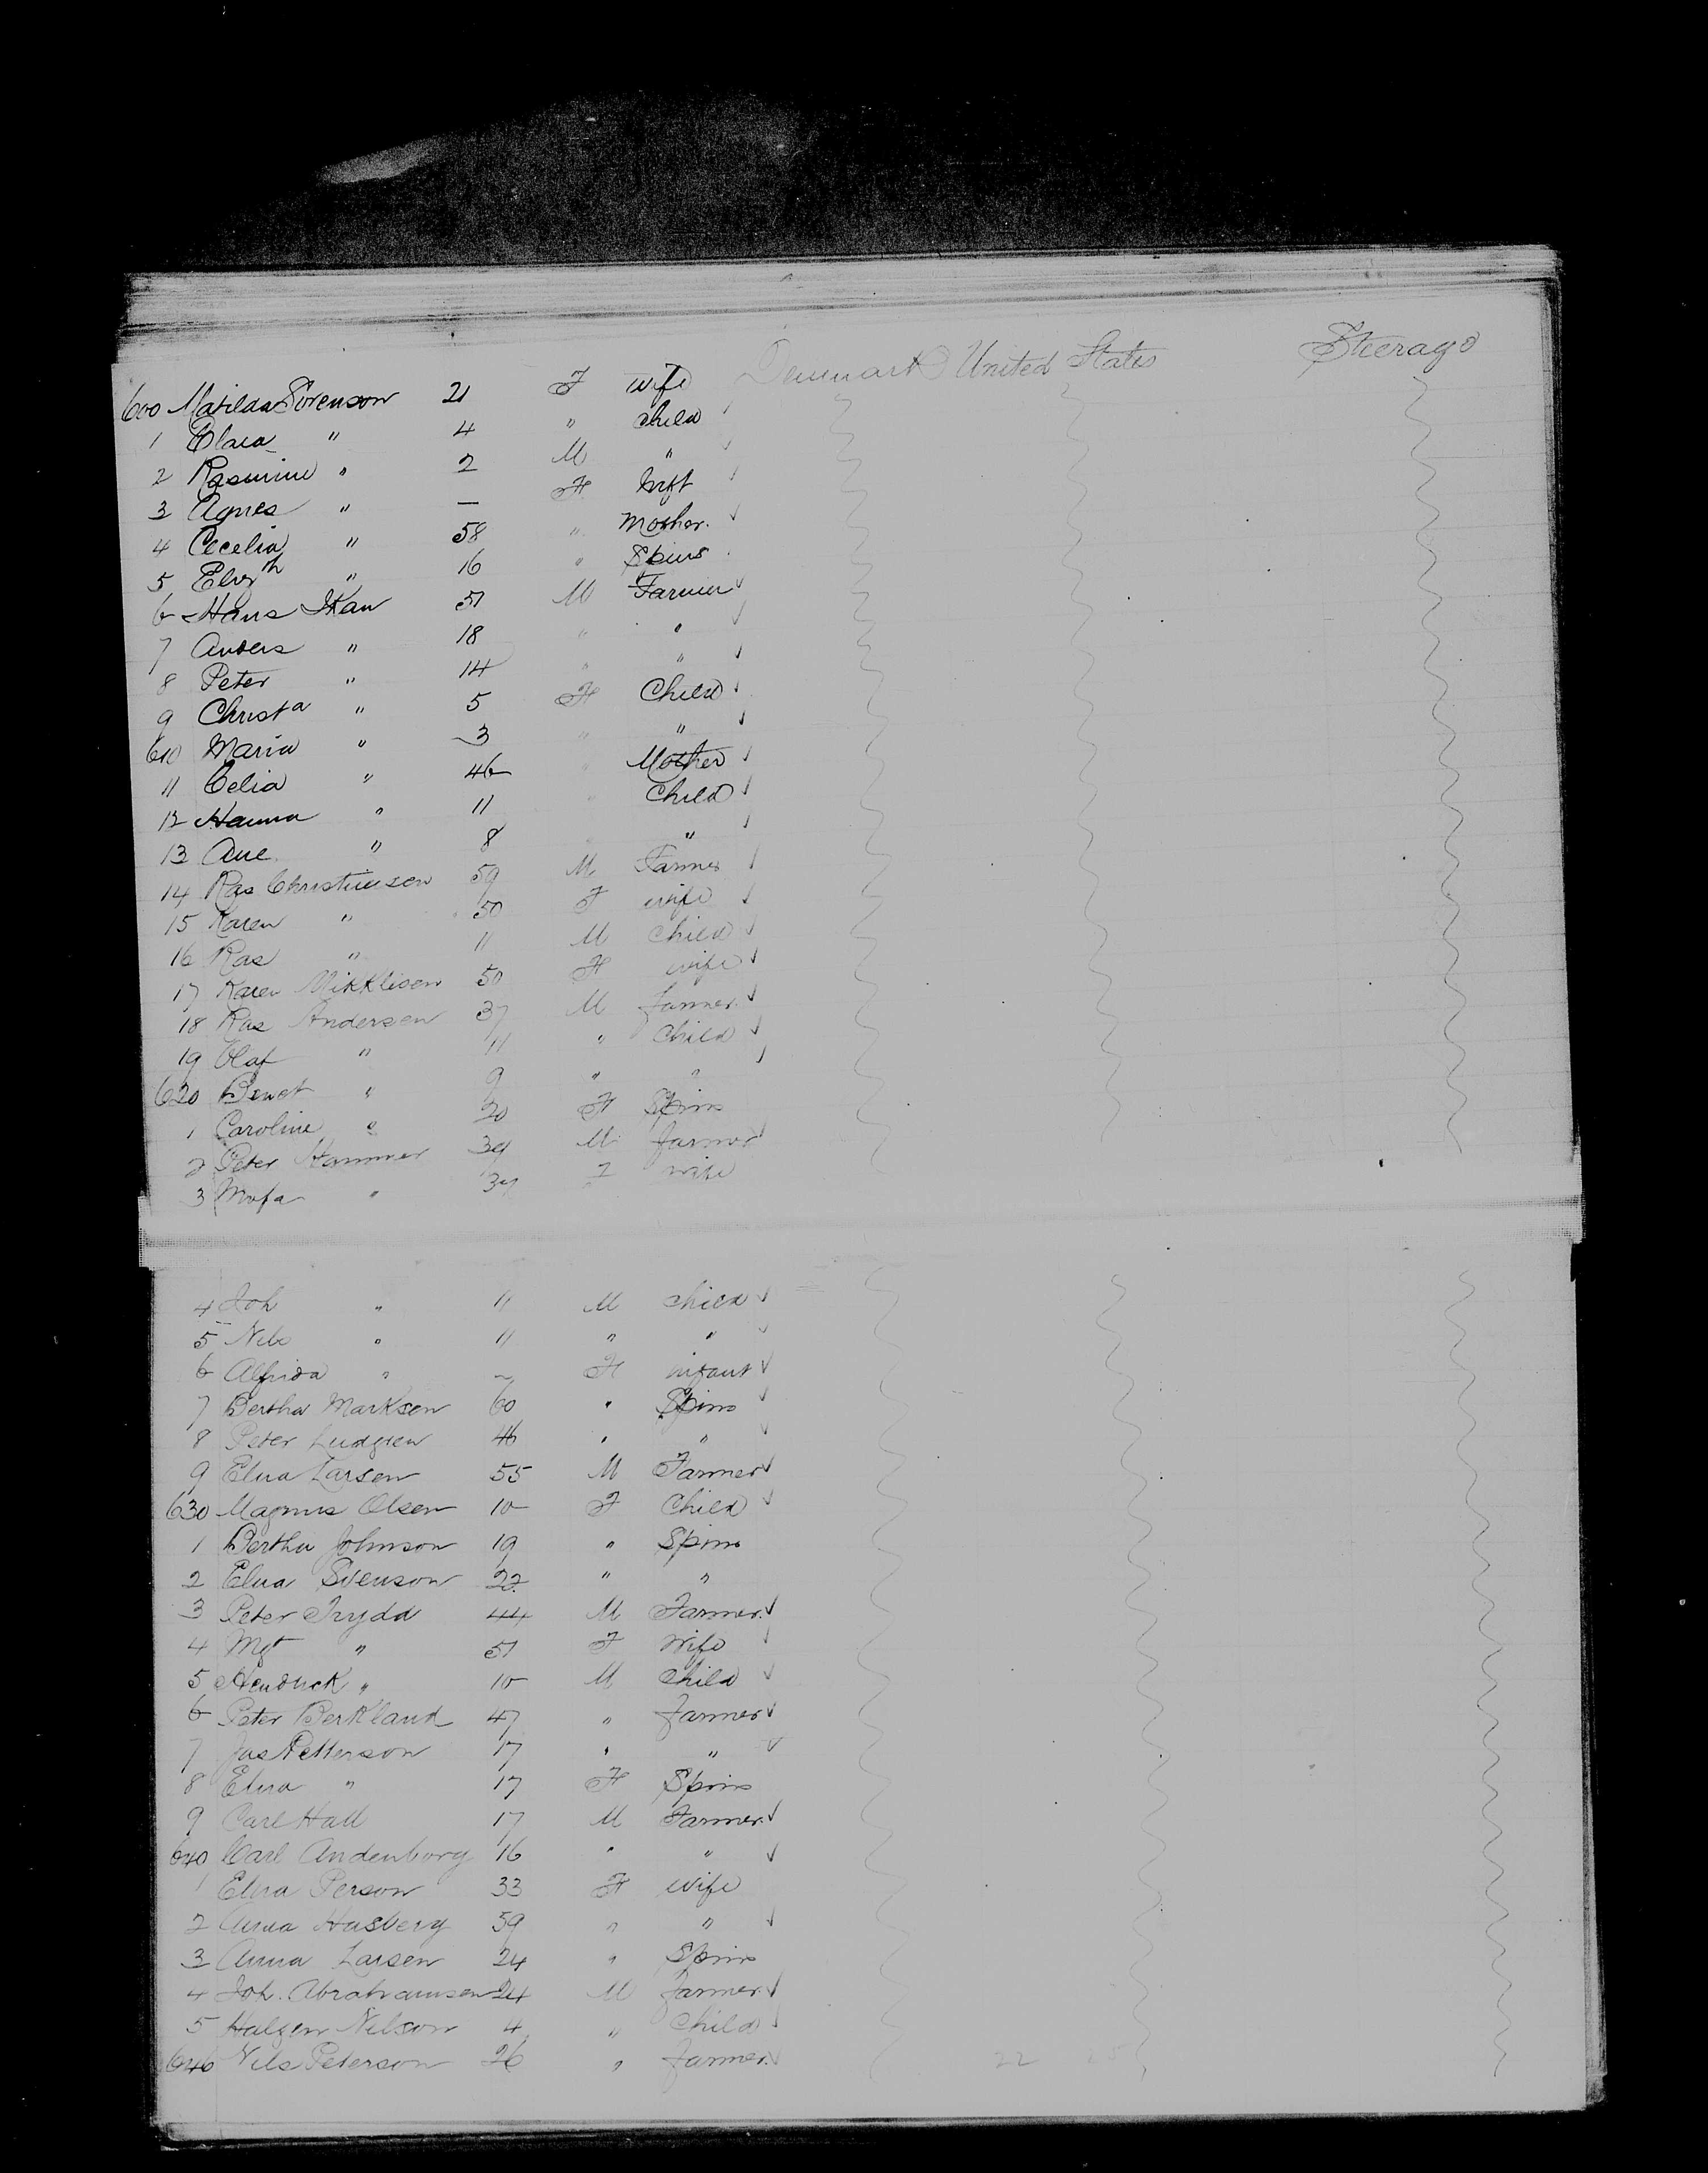 600 Matilda Sorenson 21 F wife Denmark United States Steerage
1 Clara " 4 " child
2 Rasmine " 2 M "
3 Agnes " — F Inft
4 Cecelia " 58 " Mother.
5 Elizth " 16 " Spins
6 Hans Skau 51 M Farmer
7 Anders " 18 " "
8 Peter " 14 " "
9 Christa " 5 F Child
610 Maria " 3 " "
11 Celia " 46 " Mother
12 Hanna " 11 " Child
13 Ane " 8 "
14 Ras Christiensen 59 M Farmer
15 Karen " 50 F wife
16 Ras " 11 M Child
17 Karen Mikklisen 50 F wife
18 Ras Andersen 37 M farmer.
19 Olaf " 11 " Child
620 Benet " 9 " "
1 Caroline " 20 F Spins
2 Peter Hammer 39 M farmer
3 " F wife
4 Joh " 11 M child
5 Nils " 11 " "
6 Alfrida " — F infant
7 Bertha Markson 60 " Spins
8 Peter Ludgren 46 " "
9 Elna Larsen 55 M Farmer
630 Magnus Olsen 10 F Child
1 Bertha Johnson 19 " Spins
2 Elna Svenson 22 " "
3 Peter Trydd 44 M Farmer.
4 Mgt " 51 F Wife
5 Hendrick " 10 M Child
6 Peter Berkland 47 " farmer
7 Jas Petterson 17 " "
8 Elna " 17 F Spins
9 Carl Hall 17 M Farmer.
640 Carl Andenborg 16 " "
1 Elna Person 33 F wife
2 Anna Hasberg 59 " "
3 Anna Larsen 24 " Spins
4 Joh. Abrahamsen 24 M farmer.
5 Halgen Nelson 4 " Child
646 Nils Peterson 26 " farmer. 22